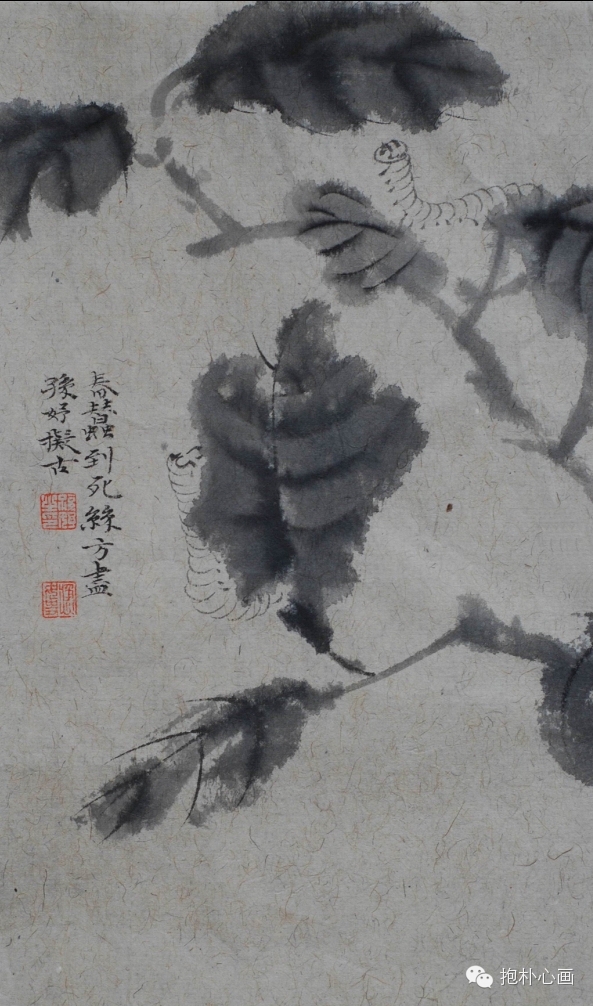 春蠶到死絲方盡
豫妤擬古
抱朴心画